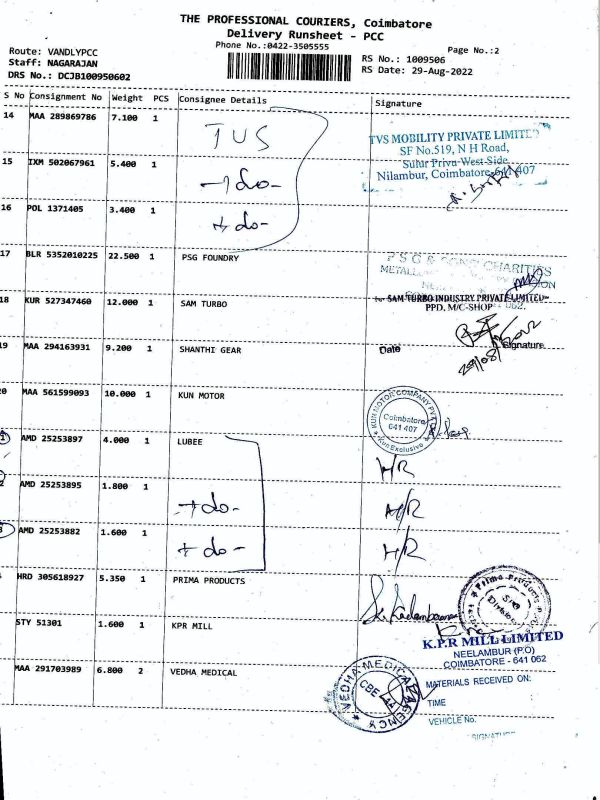 THE PROFESSIONAL COURIERS, Coimbatore
Delivery Runsheet - PCC
Phone No.:0422-3505555
Page No.:2
Route: VANDLYPCC
Staff: NAGARAJAN
DRS No.: DCJB100950602
RS No.: 1009506
RS Date: 29-Aug-2022
S No Consignment No Weight PCS Consignee Details Signature
14 MAA 289869786 7.100 1 TVS
TVS MOBILITY PRIVATE LIMITED
SF No.519, N H Road,
Sulur Privu West Side
Nilambur, Coimbatore-641 407
15 IXM 502067961 5.400 1 -do-
16 POL 1371405 3.400 1 -do-
17 BLR 5352010225 22.500 1 PSG FOUNDRY
PSG & SONS CHARITIES
18 KUR 527347460 12.000 1 SAM TURBO
For SAM TURBO INDUSTRY PRIVATE LIMITED
PPD, M/C-SHOP
19 MAA 294163931 9.200 1 SHANTHI GEAR
Date 29/08/2022 Signature
0 MAA 561599093 10.000 1 KUN MOTOR
KUN MOTOR COMPANY PVT LTD
Coimbatore
641 407
Kun Exclusive
1 AMD 25253897 4.000 1 LUBEE H/R
2 AMD 25253895 1.800 1 -do- H/R
3 AMD 25253882 1.600 1 -do- H/R
HRD 305618927 5.350 1 PRIMA PRODUCTS
Prima Products
STY 51301 1.600 1 KPR MILL
K.P.R MILL LIMITED
NEELAMBUR (P.O)
COIMBATORE - 641 062
MAA 291703989 6.800 2 VEDHA MEDICAL
VEDHA MEDICAL AGENCY
CBE-44
MATERIALS RECEIVED ON:
TIME
VEHICLE No.
SIGNATURE